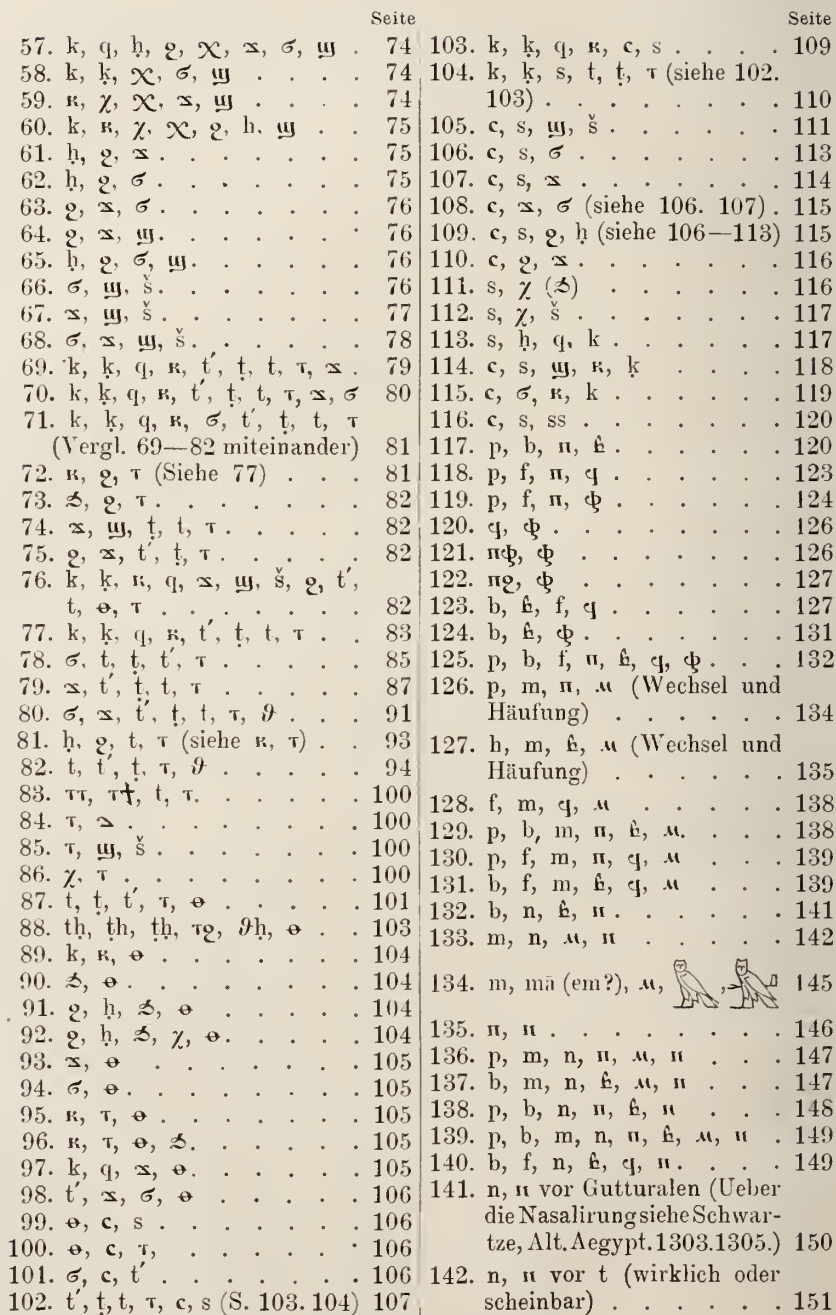 Seite
57. k, q, ḥ, ϩ, ⲭ, ϫ, ϭ, ϣ . 74
58. k, ḳ, ⲭ, ϭ, ϣ . . . . 74
59. ⲕ, χ, ⲭ, ϫ, ϣ . . . . 74
60. k, ⲕ, χ, ⲭ, ϩ, h, ϣ . . 75
61. ḥ, ϩ, ϫ . . . . . . . 75
62. ḥ, ϩ, ϭ . . . . . . . 75
63. ϩ, ϫ, ϭ . . . . . . . 76
64. ϩ, ϫ, ϣ. . . . . . . 76
65. ḥ, ϩ, ϭ, ϣ. . . . . . 76
66. ϭ, ϣ, š. . . . . . . 76
67. ϫ, ϣ, š . . . . . . . 77
68. ϭ, ϫ, ϣ, š. . . . . . 78
69. k, ḳ, q, ⲕ, t′, ṭ, t, ⲧ, ϫ . 79
70. k, ḳ, q, ⲕ, t′, ṭ, t, ⲧ, ϫ, ϭ 80
71. k, ḳ, q, ⲕ, ϭ, t′, ṭ, t, ⲧ
(Vergl. 69—82 miteinander) 81
72. ⲕ, ϩ, ⲧ (Siehe 77) . . . 81
73. ϧ, ϩ, ⲧ. . . . . . . 82
74. ϫ, ϣ, ṭ, t, ⲧ. . . . . 82
75. ϩ, ϫ, t′, ṭ, ⲧ. . . . . 82
76. k, ḳ, ⲕ, q, ϫ, ϣ, š, ϩ, t′,
t, ⲑ, ⲧ . . . . . . . 82
77. k, ḳ, q, ⲕ, t′, ṭ, t, ⲧ . . 83
78. ϭ, t, ṭ, t′, ⲧ . . . . . 85
79. ϫ, t′, ṭ, t, ⲧ . . . . . 87
80. ϭ, ϫ, t′, ṭ, t, ⲧ, ϑ . . . 91
81. ḥ, ϩ, t, ⲧ (siehe ⲕ, ⲧ) . . 93
82. t, t′, ṭ, ⲧ, ϑ . . . . . 94
83. ⲧⲧ, ⲧϯ, t, ⲧ. . . . . . 100
84. ⲧ, ⲇ . . . . . . . . 100
85. ⲧ, ϣ, š . . . . . . . 100
86. χ, ⲧ . . . . . . . . 100
87. t, ṭ, t′, ⲧ, ⲑ . . . . . 101
88. th, ṭh, ṯh, ⲧϩ, ϑh, ⲑ . . 103
89. k, ⲕ, ⲑ . . . . . . . 104
90. ϧ, ⲑ. . . . . . . . . 104
91. ϩ, ḥ, ϧ, ⲑ . . . . . . 104
92. ϩ, ḥ, ϧ, χ, ⲑ. . . . . 104
93. ϫ, ⲑ . . . . . . . . 105
94. ϭ, ⲑ. . . . . . . . . 105
95. ⲕ, ⲧ, ⲑ . . . . . . . 105
96. ⲕ, ⲧ, ⲑ, ϧ. . . . . . 105
97. k, q, ϫ, ⲑ. . . . . . 105
98. t′, ϫ, ϭ, ⲑ . . . . . . 106
99. ⲑ, c, s . . . . . . . 106
100. ⲑ, c, ⲧ, . . . . . . 106
101. ϭ, c, t′ . . . . . . . 106
102. t′, ṭ, t, ⲧ, c, s (S. 103. 104) 107
Seite
103. k, ḳ, q, ⲕ, c, s . . . . 109
104. k, ḳ, s, t, ṭ, ⲧ (siehe 102.
103) . . . . . . . . 110
105. c, s, ϣ, š . . . . . . 111
106. c, s, ϭ . . . . . . . 113
107. c, s, ϫ . . . . . . . 114
108. c, ϫ, ϭ (siehe 106. 107) . 115
109. c, s, ϩ, ḥ (siehe 106—113) 115
110. c, ϩ, ϫ . . . . . . . 116
111. s, χ (ϧ) . . . . . . 116
112. s, χ, š . . . . . . . 117
113. s, ḥ, q, k . . . . . . 117
114. c, s, ϣ, ⲕ, ḳ . . . . 118
115. c, ϭ, ⲕ, k . . . . . . 119
116. c, s, ss . . . . . . . 120
117. p, b, ⲡ, ⲃ . . . . . . 120
118. p, f, ⲡ, ϥ . . . . . . 123
119. p, f, ⲡ, ⲫ . . . . . . 124
120. ϥ, ⲫ . . . . . . . . 126
121. ⲡⲫ, ⲫ . . . . . . . 126
122. ⲡϩ, ⲫ . . . . . . . 127
123. b, ⲃ, f, ϥ . . . . . . 127
124. b, ⲃ, ⲫ . . . . . . . 131
125. p, b, f, ⲡ, ⲃ, ϥ, ⲫ . . . 132
126. p, m, ⲡ, ⲙ (Wechsel und
Häufung) . . . . . . 134
127. h, m, ⲃ, ⲙ (Wechsel und
Häufung) . . . . . . 135
128. f, m, ϥ, ⲙ . . . . . 138
129. p, b, m, ⲡ, ⲃ, ⲙ. . . . 138
130. p, f, m, ⲡ, ϥ, ⲙ . . . 139
131. b, f, m, ⲃ, ϥ, ⲙ . . . 139
132. b, n, ⲃ, ⲛ . . . . . . 141
133. m, n, ⲙ, ⲛ . . . . . 142
134. m, mā (em?), ⲙ, 𓅓, 𓅔 145
135. ⲡ, ⲛ . . . . . . . . 146
136. p, m, n, ⲡ, ⲙ, ⲛ . . . 147
137. b, m, n, ⲃ, ⲙ, ⲛ . . . 147
138. p, b, n, ⲡ, ⲃ, ⲛ . . . 148
139. p, b, m, n, ⲡ, ⲃ, ⲙ, ⲛ . 149
140. b, f, n, ⲃ, ϥ, ⲛ. . . . 149
141. n, ⲛ vor Gutturalen (Ueber
die Nasalirung siehe Schwar-
tze, Alt. Aegypt. 1303. 1305.) 150
142. n, ⲛ vor t (wirklich oder
scheinbar) . . . . . . 151